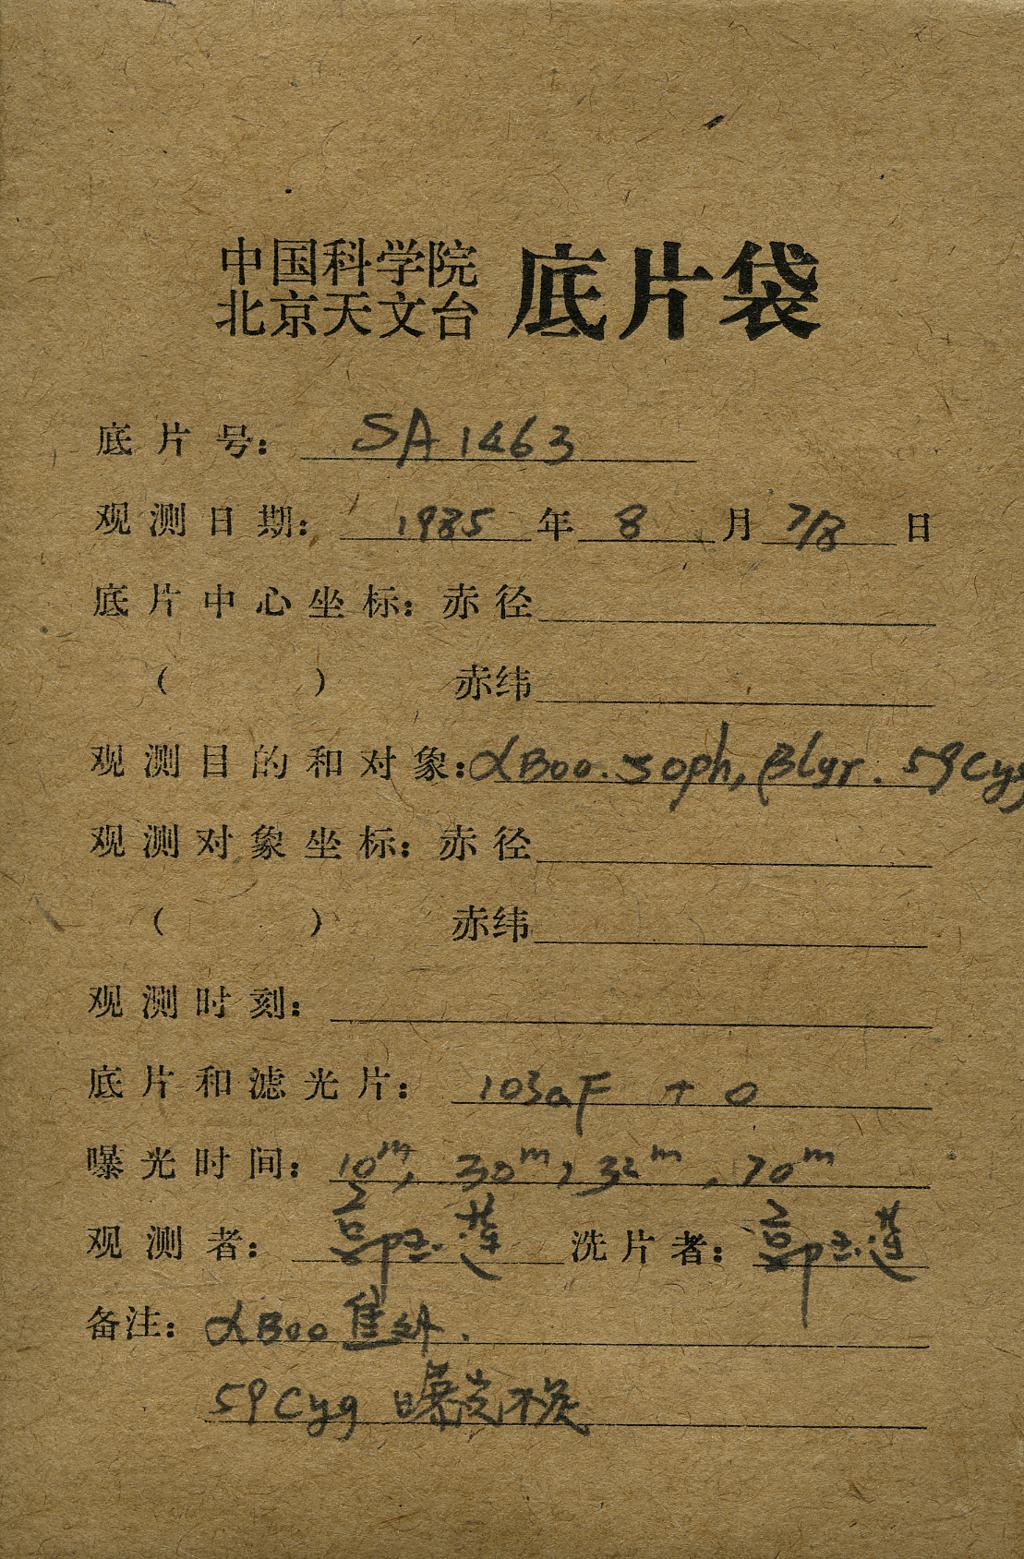 中国科学院
北京天文台 底片袋
底片号: SA1463
观测日期: 1985 年 8 月 7/8 日
底片中心坐标: 赤径
( ) 赤纬
观测目的和对象: αBoo. ζ oph, βlyr. 59Cyg
观测对象坐标: 赤径
( ) 赤纬
观测时刻:
底片和滤光片: 103aF + 0
曝光时间: 10m, 30m, 32m, 70m
观测者: 郭玉莲 洗片者: 郭玉莲
备注: αBoo
59Cyg 曝光不足